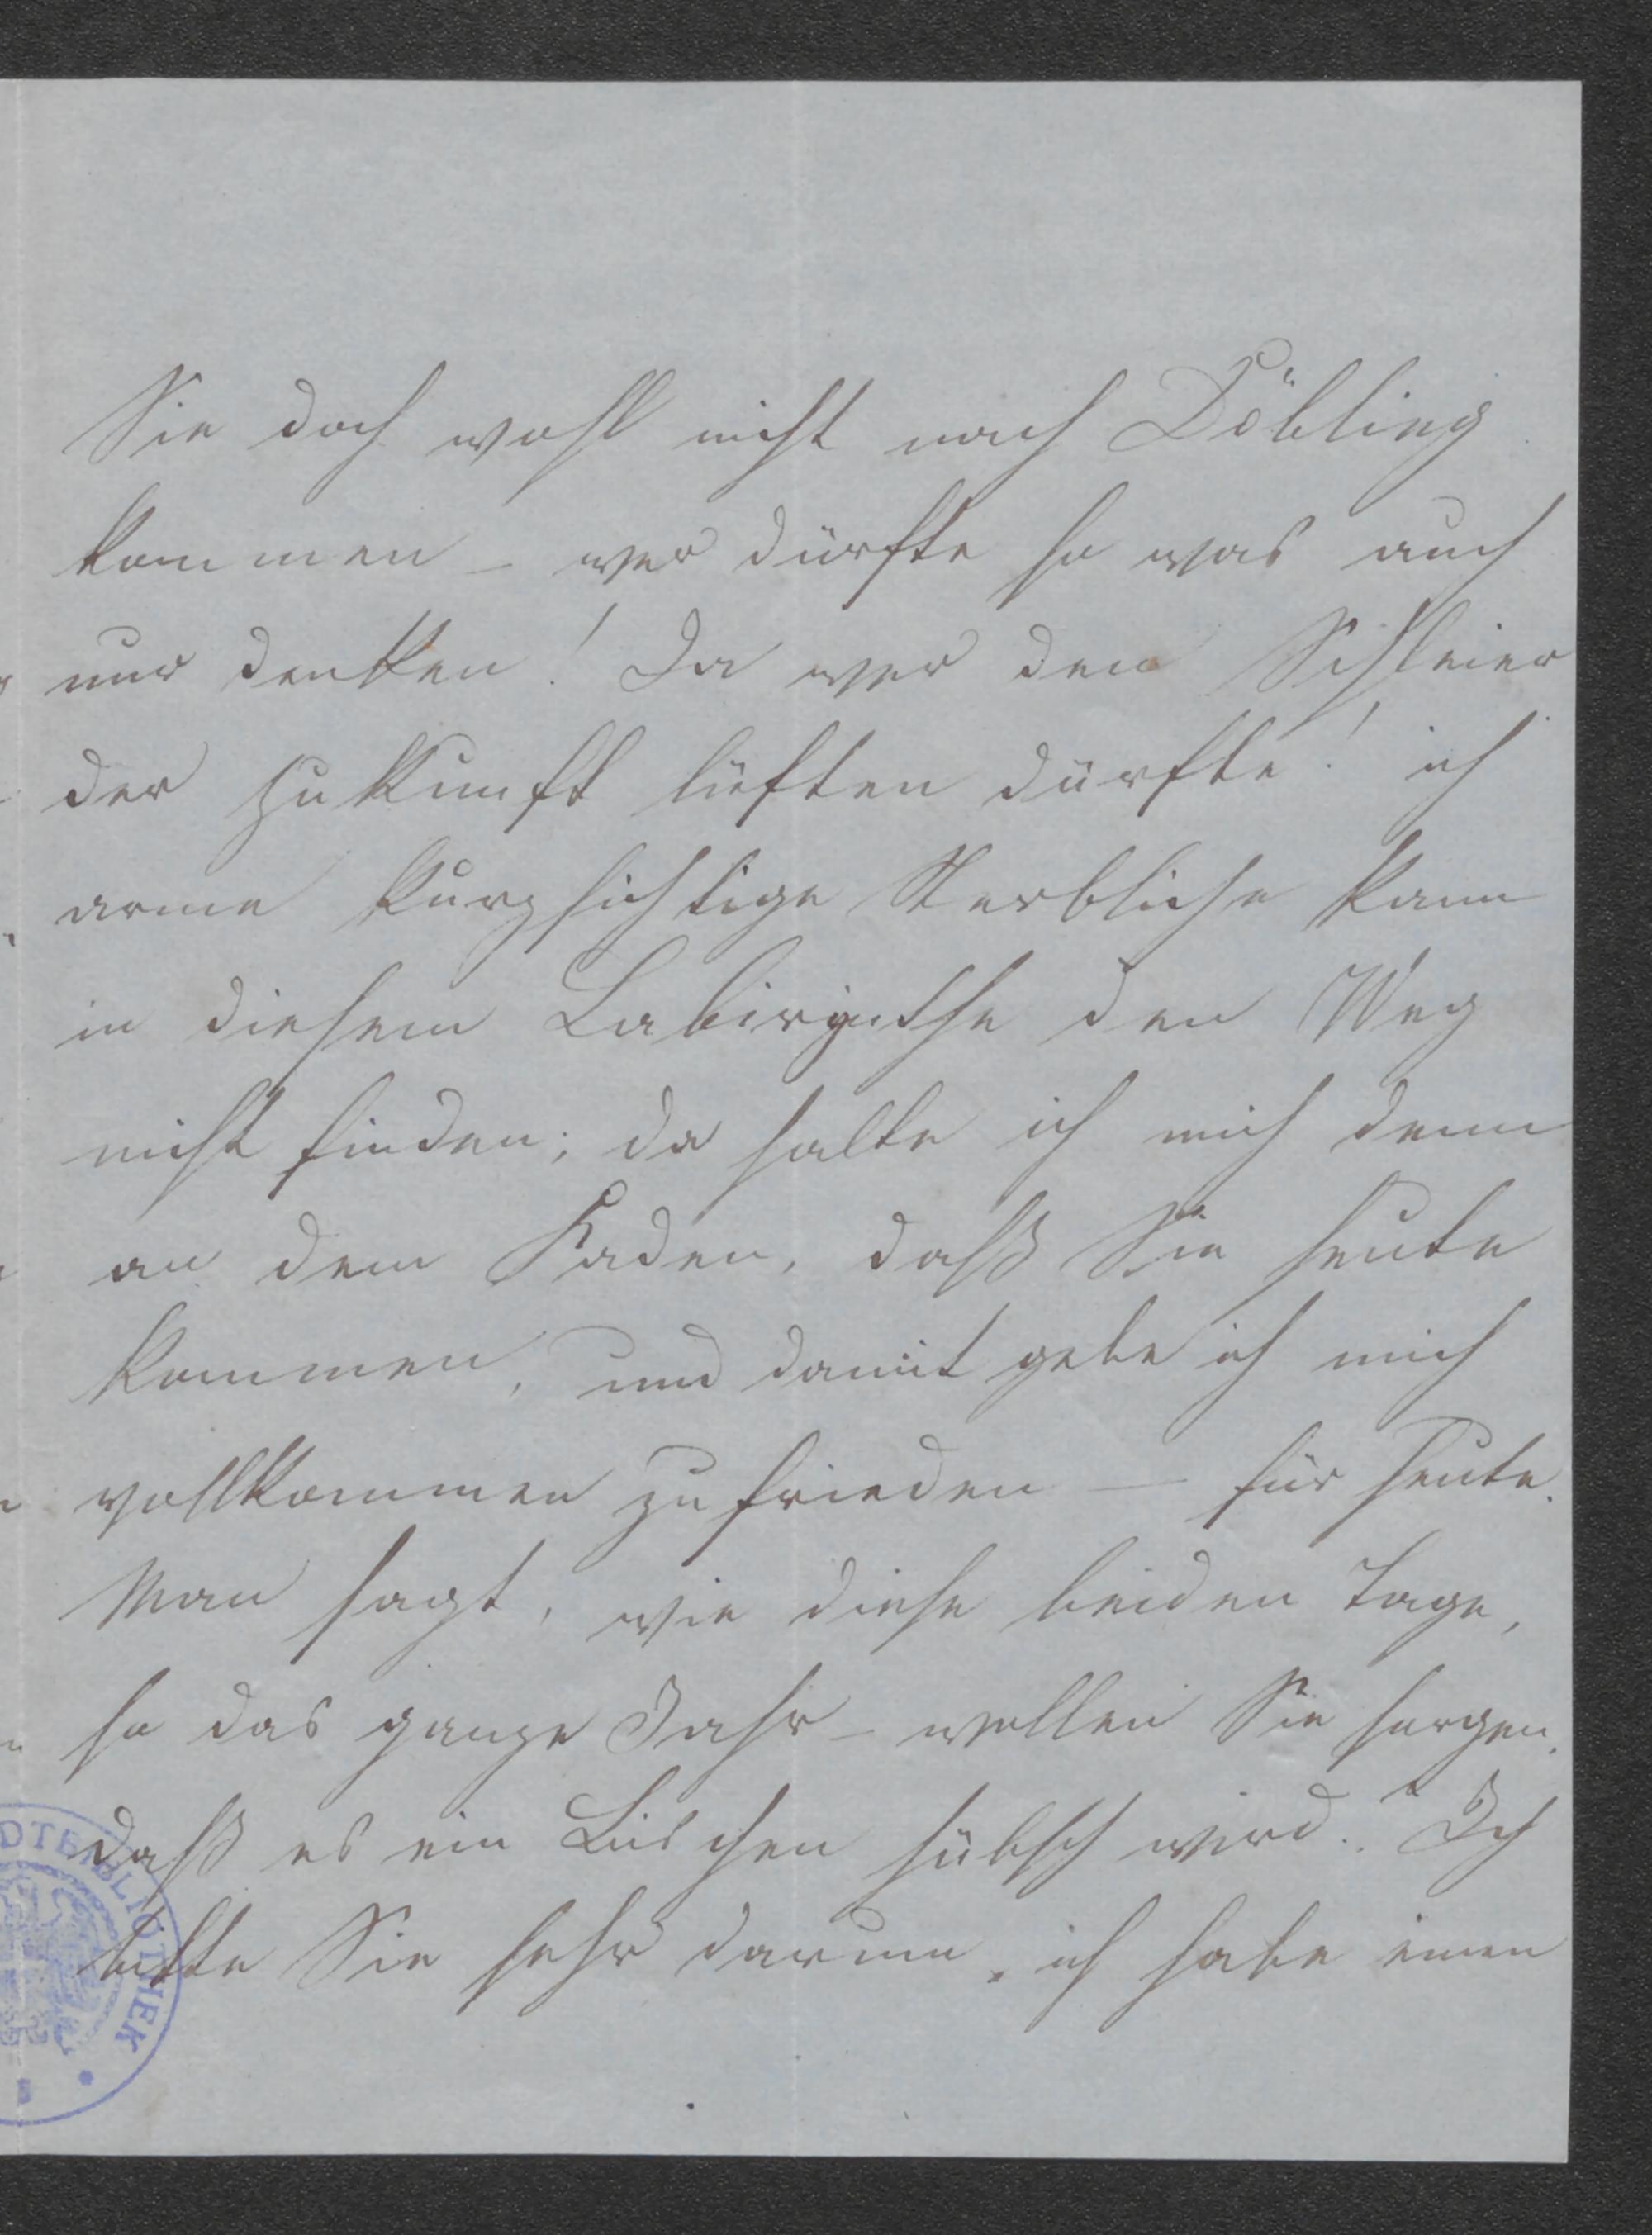 Sie doch wohl nicht nach Döbling
kommen – wer dürfte so was auch
nur denken! Ja wer den Schleier
der Zukunft lüften dürfte! ich
arme kurzsichtige Sterbliche kann
in diesem Labirynthe den Weg
nicht finden; da halte ich mich denn
an dem Faden, daß Sie heute
kommen, und damit gebe ich mich
vollkommen zufrieden – für heute.
Man sagt, wie diese beiden Tage,
so das ganze Jahr – wollen Sie sorgen,
daß es ein Bischen hübsch wird? Ich
bitte Sie sehr darum, ich habe einen
DTBIBLIOTHEK